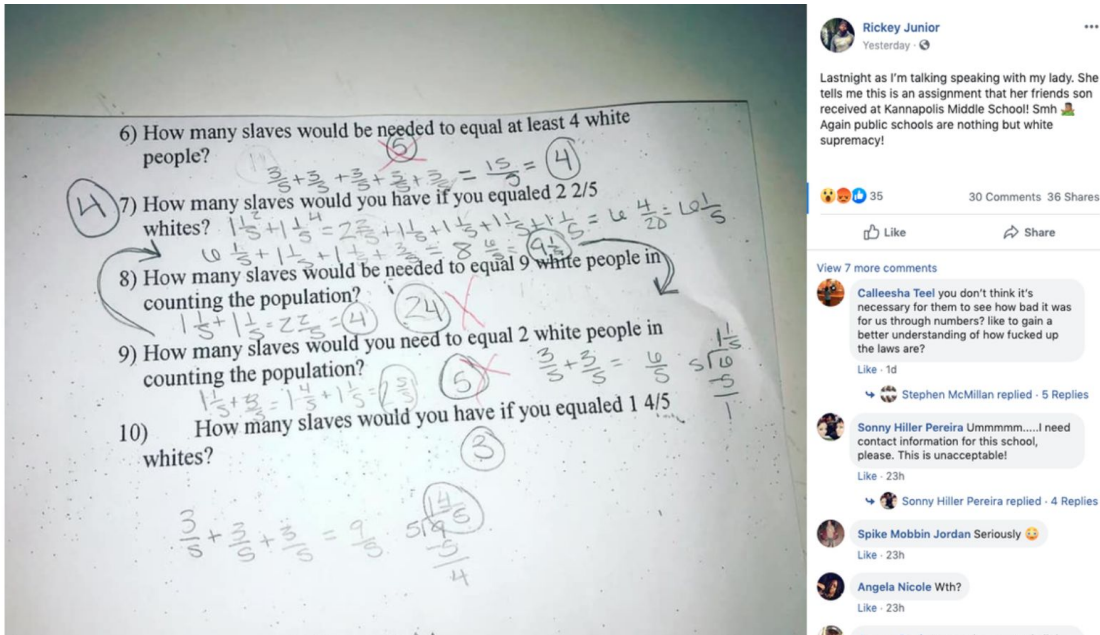 6) How many slaves would be needed to equal at least 4 white
people?
5
3/5 + 3/5 + 3/5 + 3/5 + 3/5 = 15/5 = 4
4
7) How many slaves would you have if you equaled 2 2/5
whites?
8) How many slaves would be needed to equal 9 white people in
counting the population?
24
1 1/5 + 1 1/5 = 2 2/5 = 4
9) How many slaves would you need to equal 2 white people in
counting the population?
5
3/5 + 3/5 = 6/5
10) How many slaves would you have if you equaled 1 4/5
whites?
3
3/5 + 3/5 + 3/5 = 9/5
Rickey Junior
Yesterday ·
Lastnight as I'm talking speaking with my lady. She
tells me this is an assignment that her friends son
received at Kannapolis Middle School! Smh
Again public schools are nothing but white
supremacy!
35
30 Comments 36 Shares
Like
Share
View 7 more comments
Calleesha Teel you don't think it's
necessary for them to see how bad it was
for us through numbers? like to gain a
better understanding of how fucked up
the laws are?
Like · 1d
Stephen McMillan replied · 5 Replies
Sonny Hiller Pereira Ummmmm.....I need
contact information for this school,
please. This is unacceptable!
Like · 23h
Sonny Hiller Pereira replied · 4 Replies
Spike Mobbin Jordan Seriously
Like · 23h
Angela Nicole Wth?
Like · 23h